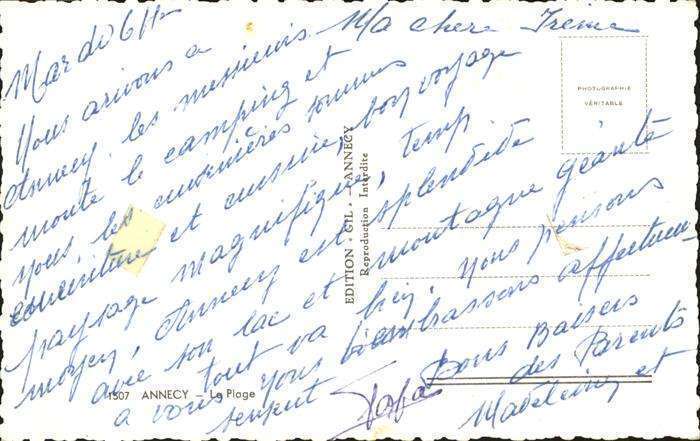 Mardi 6 H
Ma chere Irène
Nous arivons a
Annecy les messieurs
monte le camping et
nous, les cuisinières sommes
couverture et cuisine, bon voyage
paysage magnifique, temp
moyen, Annecy est splendide
avec son lac et montagne géante
tout va bien. Nous pensons
a vous vous embrassons affectueu-
sement
Bons Baisers
des Parents
Madeleine et
Papa
PHOTOGRAPHIE
VÉRITABLE
EDITION - GIL - ANNECY
Reproduction Interdite
1507 ANNECY – La Plage